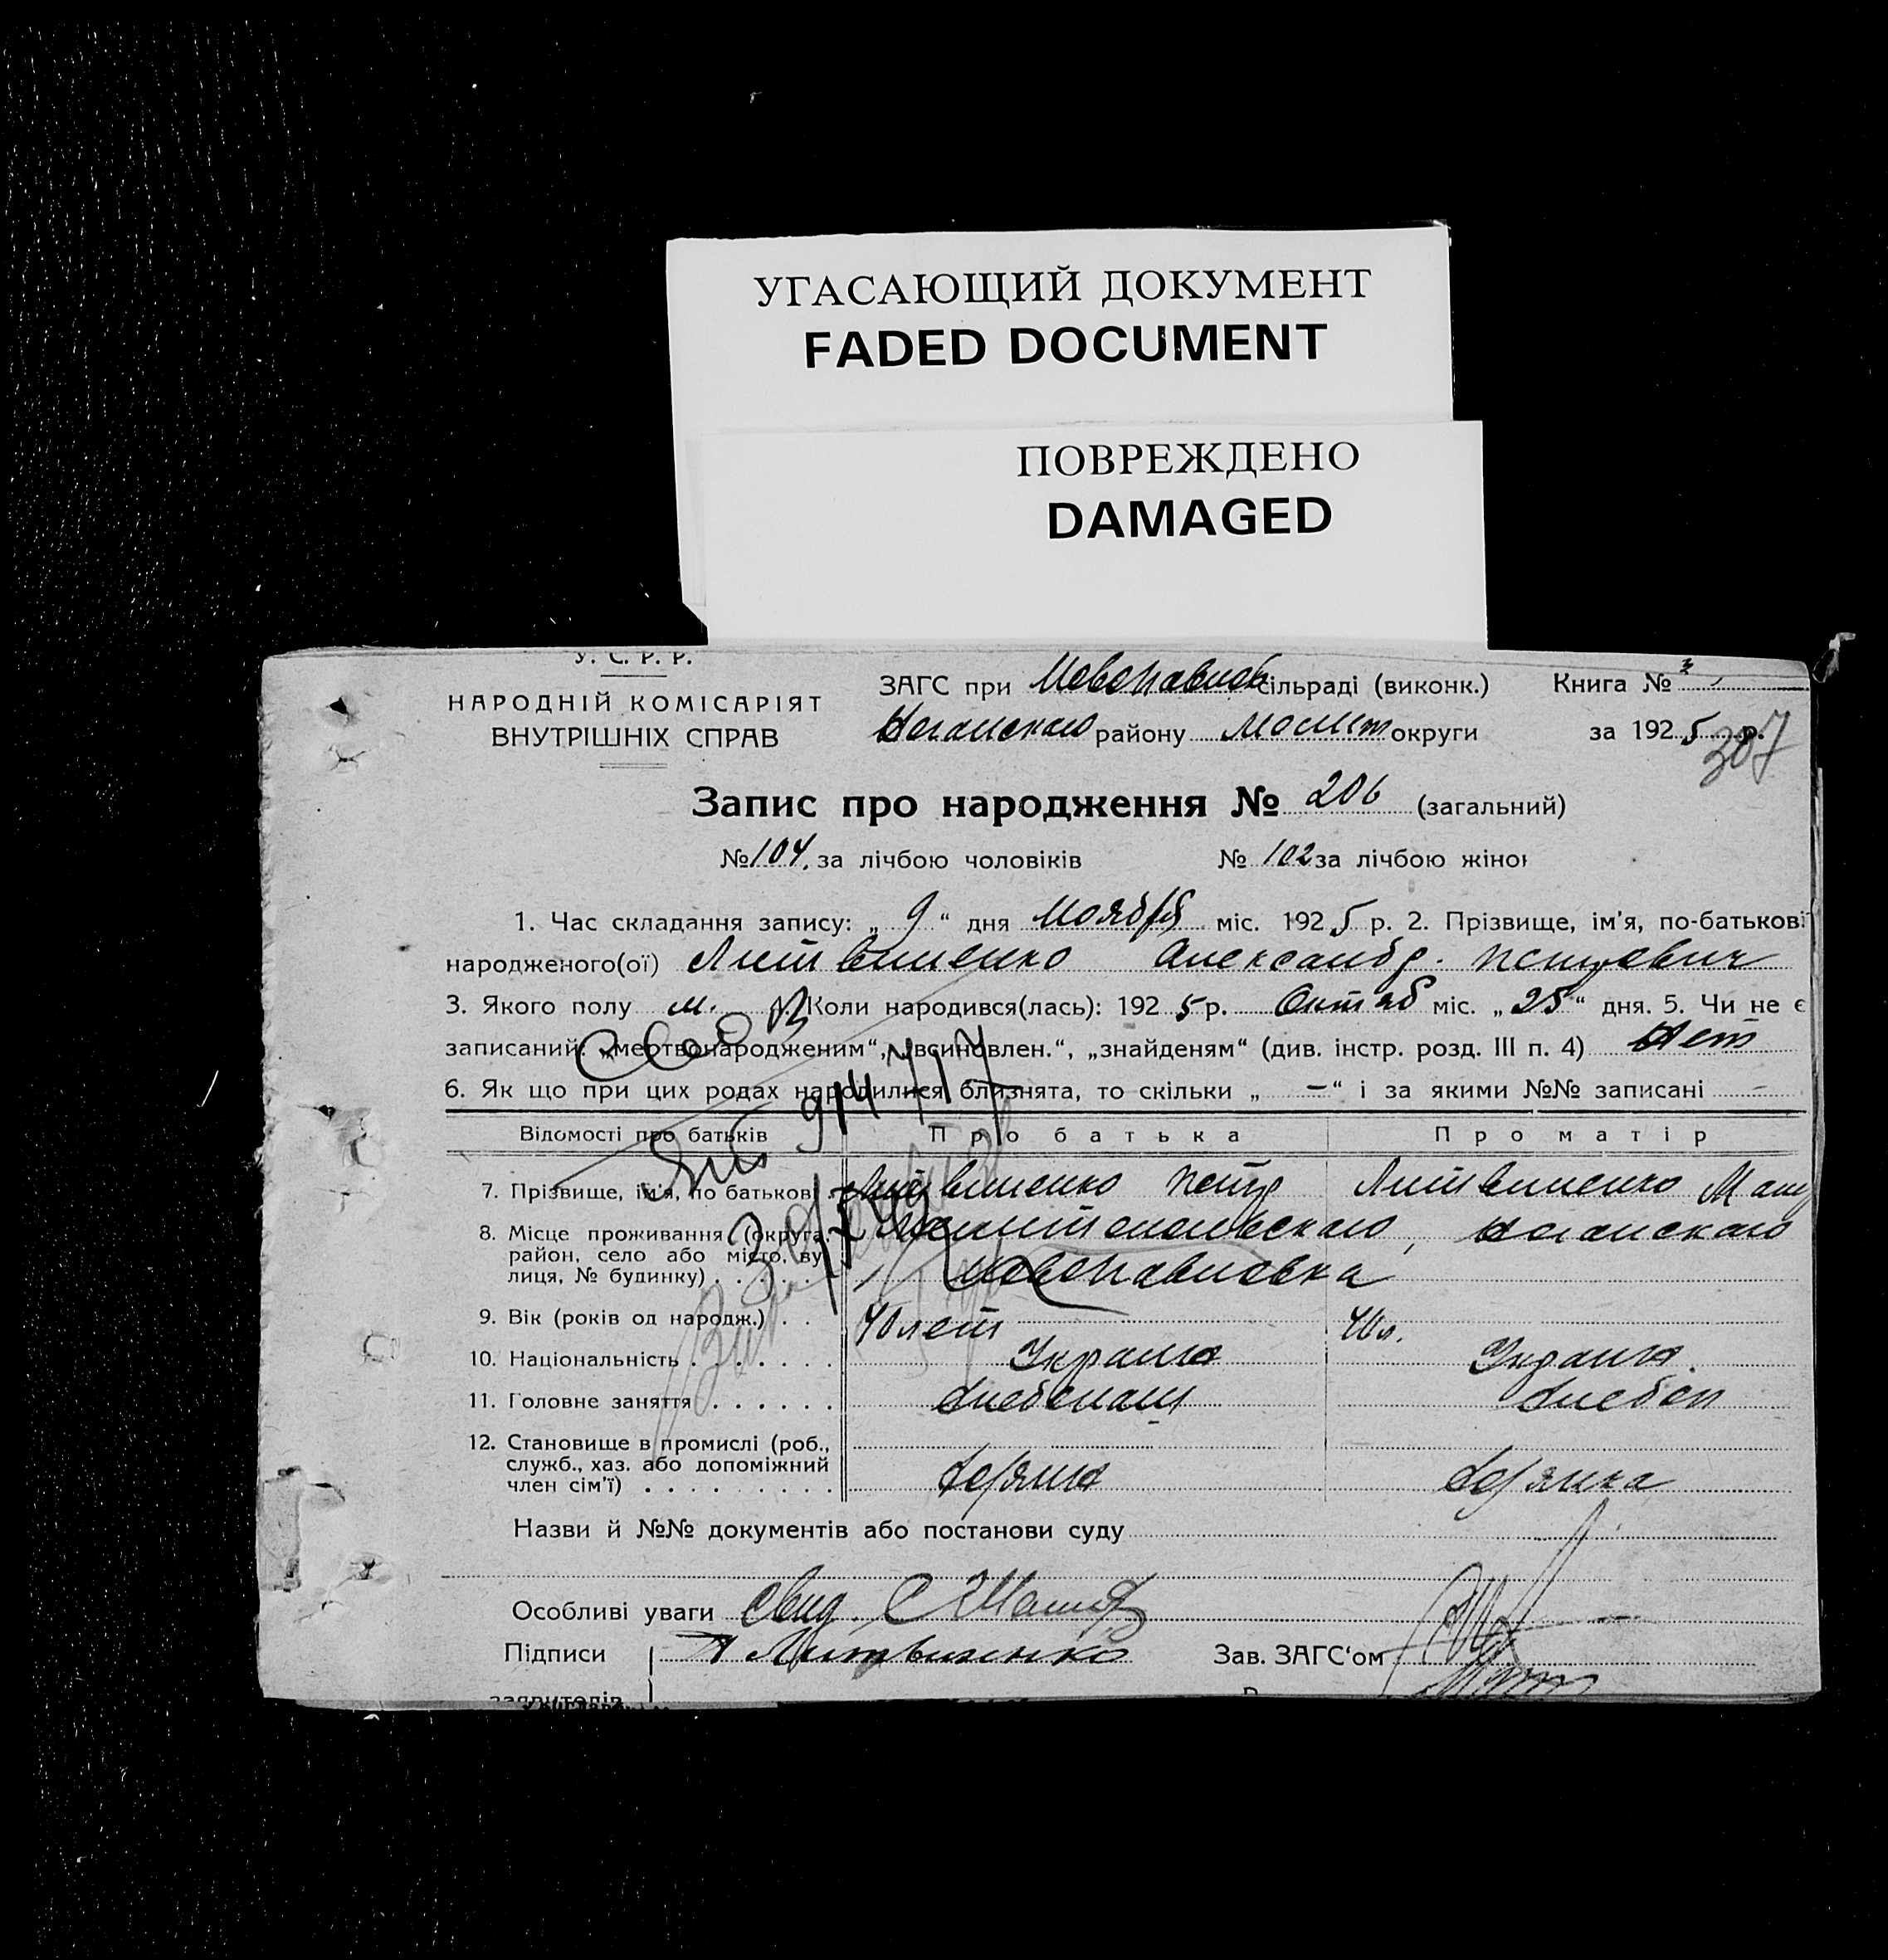 УГАСАЮЩИЙ ДОКУМЕНТ
FADED DOCUMENT
ПОВРЕЖДЕНО
DAMAGED
У. С. Р. Р.
НАРОДНІЙ КОМІСАРІЯТ
ВНУТРІШНІХ СПРАВ
ЗАГС при Новопавлов сільраді (виконк.) Книга № 3
району Мелит округи за 1925 р.
307
Запис про народження № 206 (загальний)
№ 104 за лічбою чоловіків № 102 за лічбою жінок
1. Час складання запису: „ 9 “ дня Ноября міс. 1925 р. 2. Прізвище, ім'я, по-батькові
народженого(ої) Литвиненко Александр Петрович
3. Якого полу м. 4. Коли народився(лась): 1925 р. Октяб міс. „ 25 “ дня. 5. Чи не є
записаний: „мертвонародженим“, „всиновлен.“, „знайденям“ (див. інстр. розд. III п. 4) Нет
6. Як що при цих родах народилися близнята, то скільки „ — “ і за якими №№ записані —
Відомості про батьків Про батька Про матір
7. Прізвище, ім'я, по батькові Литвиненко Петр Литвиненко
8. Місце проживання (округа, район, село або місто, вулиця, № будинку) Мелитопольского, Новопавловка
9. Вік (років од народж.) 40 лет 40 л.
10. Національність Украин Украин.
11. Головне заняття Хлебопаш Хлебоп
12. Становище в промислі (роб., служб., хаз. або допоміжний член сім'ї) Хозяин Хозяйка
Назви й №№ документів або постанови суду
Особливі уваги Свид.
Підписи Литвиненко Зав. ЗАГС‘ом
заявителів